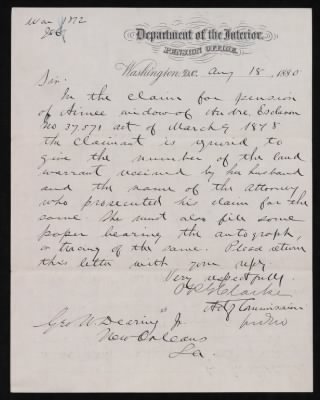 War 1812
Department of the Interior,
PENSION OFFICE,
Washington, D.C. Aug 18, 1880
Sir:
In the claim for pension
of Aimee widow of Andre
No 37,571 act of March 9 1878
the claimant is required to
give the number of the land
warrant received by his husband
and the name of the attorney
who prosecuted his claim for the
same. She must also file some
paper bearing the autograph,
or tracing of the same. Please return
this letter with your reply.
Very respectfully
Clarke
Actg Commissioner
Geo. W. Dearing Jr
New Orleans
La.